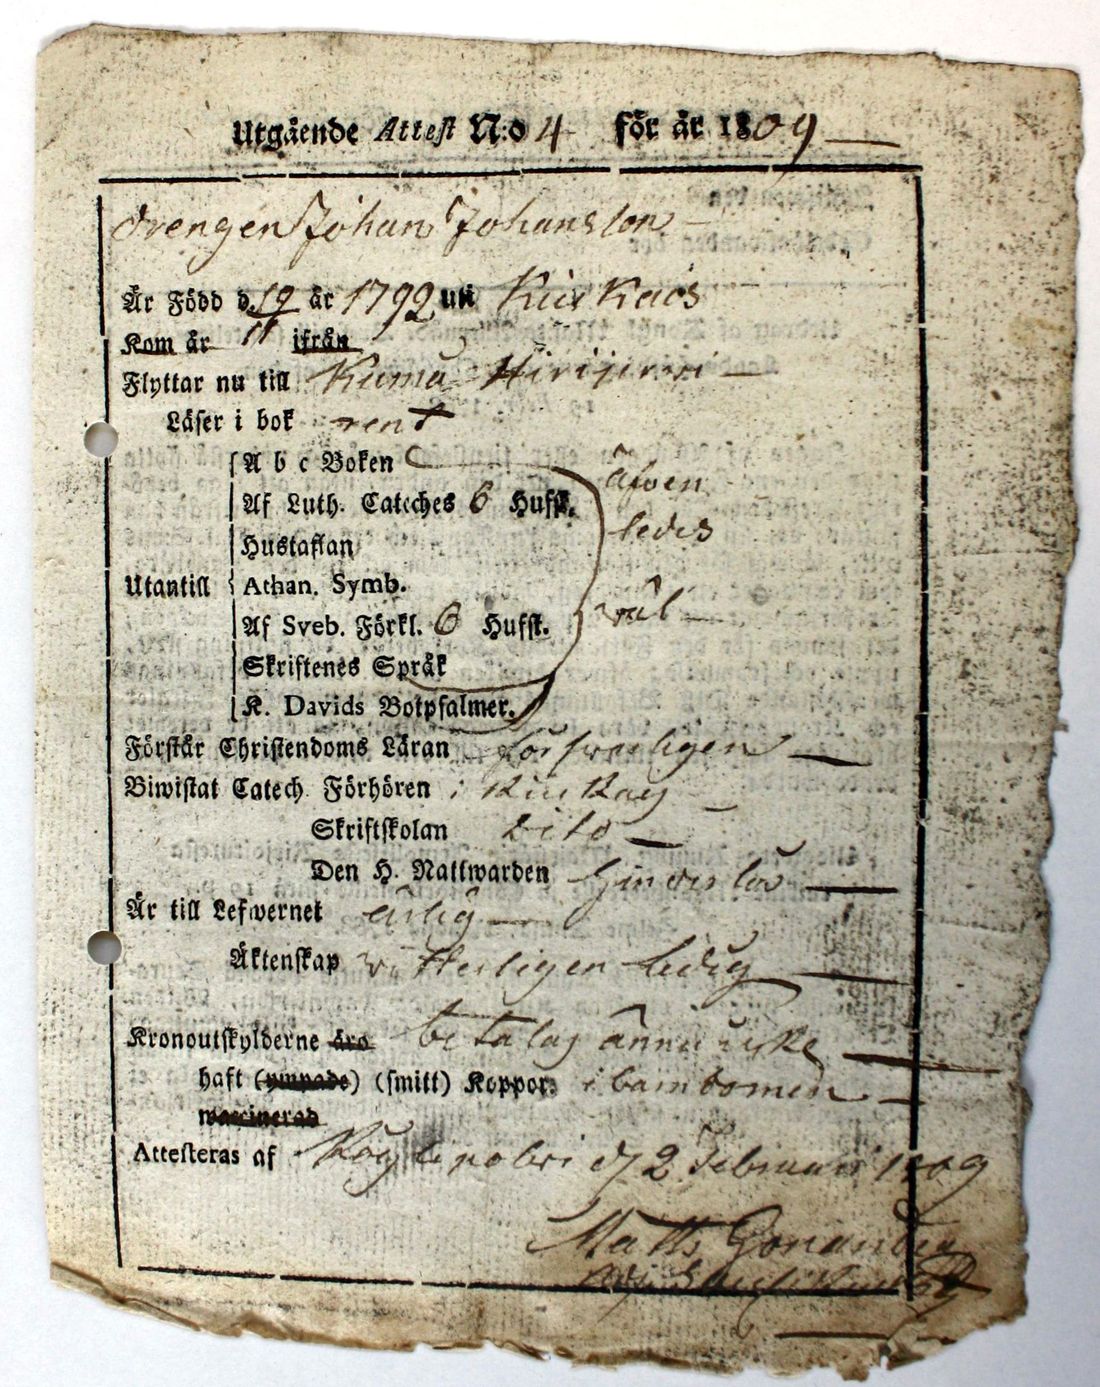 Utgående Attest N:o 4 för år 1809
drengen Johan Johansson
Är Född d. 19/11 år 1792 uti Kuskaos
Kom år ifrån
Flyttar nu till Kumu Hirijerwi
Läser i bok rent
A b c Boken
Af Luth. Cateches 6 Hufst.
Hustaflan
Utantill
Athan. Symb.
Af Sveb. Förkl. 6 Hufst.
Skriftenes Språk
K. Davids Botpsalmer.
äfven
ledes
väl
Förstår Christendoms Läran försvarligen
Biwistat Catech. Förhören i
Skriftskolan dito
Den H. Nattwarden
Är till Lefwernet ärlig
Äktenskap witterligen ledig
Kronoutskylderne äro betalas ännu icke
haft (ympade) (smitt) Koppor. i barndomen
waccinerad
Attesteras af d 2 Februari 1809
Matts